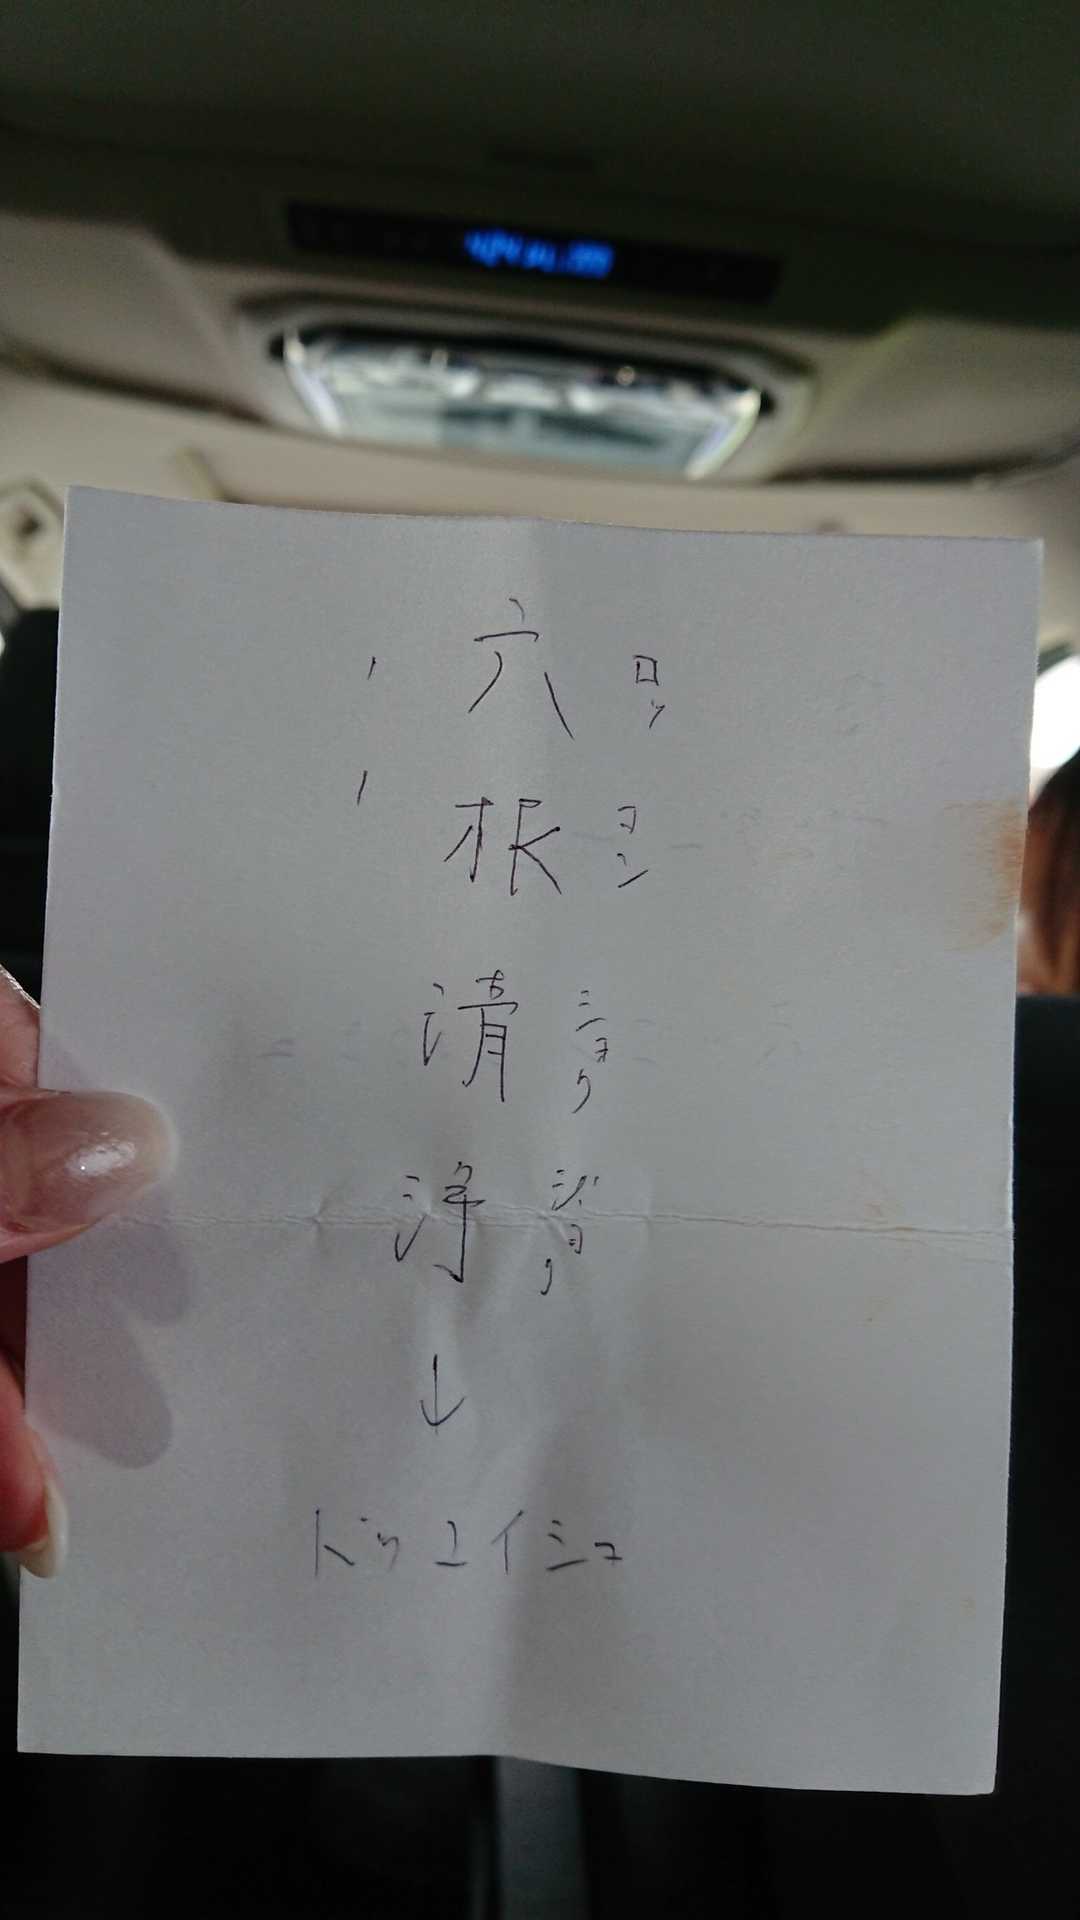 六 ロッ
根 コン
清 ショウ
浄 ジョウ
↓
ドッコイショ